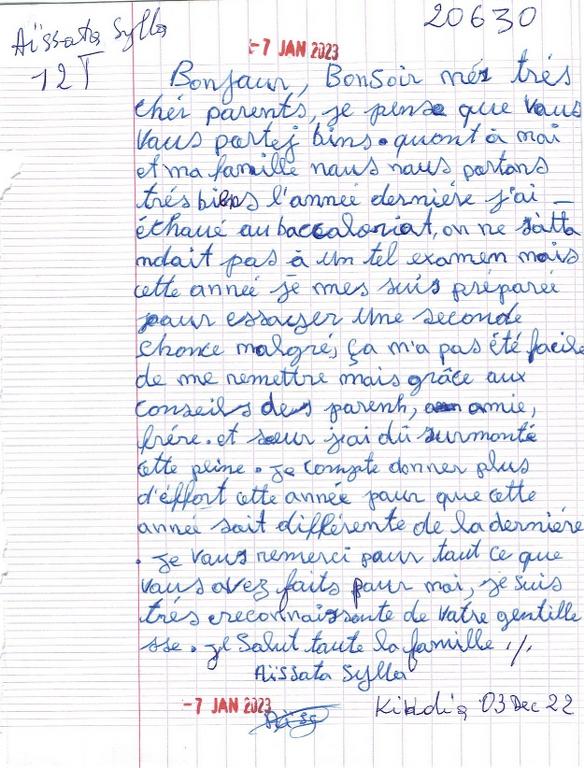 Aïssata Sylla
12T
20630
-7 JAN 2023
Bonjour, Bonsoir més trés
chér parents, je pense que vous
vous portej bins. quant à moi
et ma famille nous nous portons
trés biens l'année derniére j'ai
échoué au baccaloriat, on ne s'atta
ndait pas à un tel examen mais
cette année je mes suis préparée
pour essayer une seconde
chance malgré, ça m'a pas été facile
de me remettre mais grâce aux
conseils des parent, amie,
frére. et sœur j'ai dû surmonté
cette peine. je compte donner plus
d'éffort cette année pour que cette
année soit différente de la derniére
. je vous remerci pour tout ce que
vous avez faits pour moi, je suis
trés reconnaissante de votre gentille
sse. je salut toute la famille ./.
Aïssata Sylla
-7 JAN 2023
Kindia 03 Dec 22